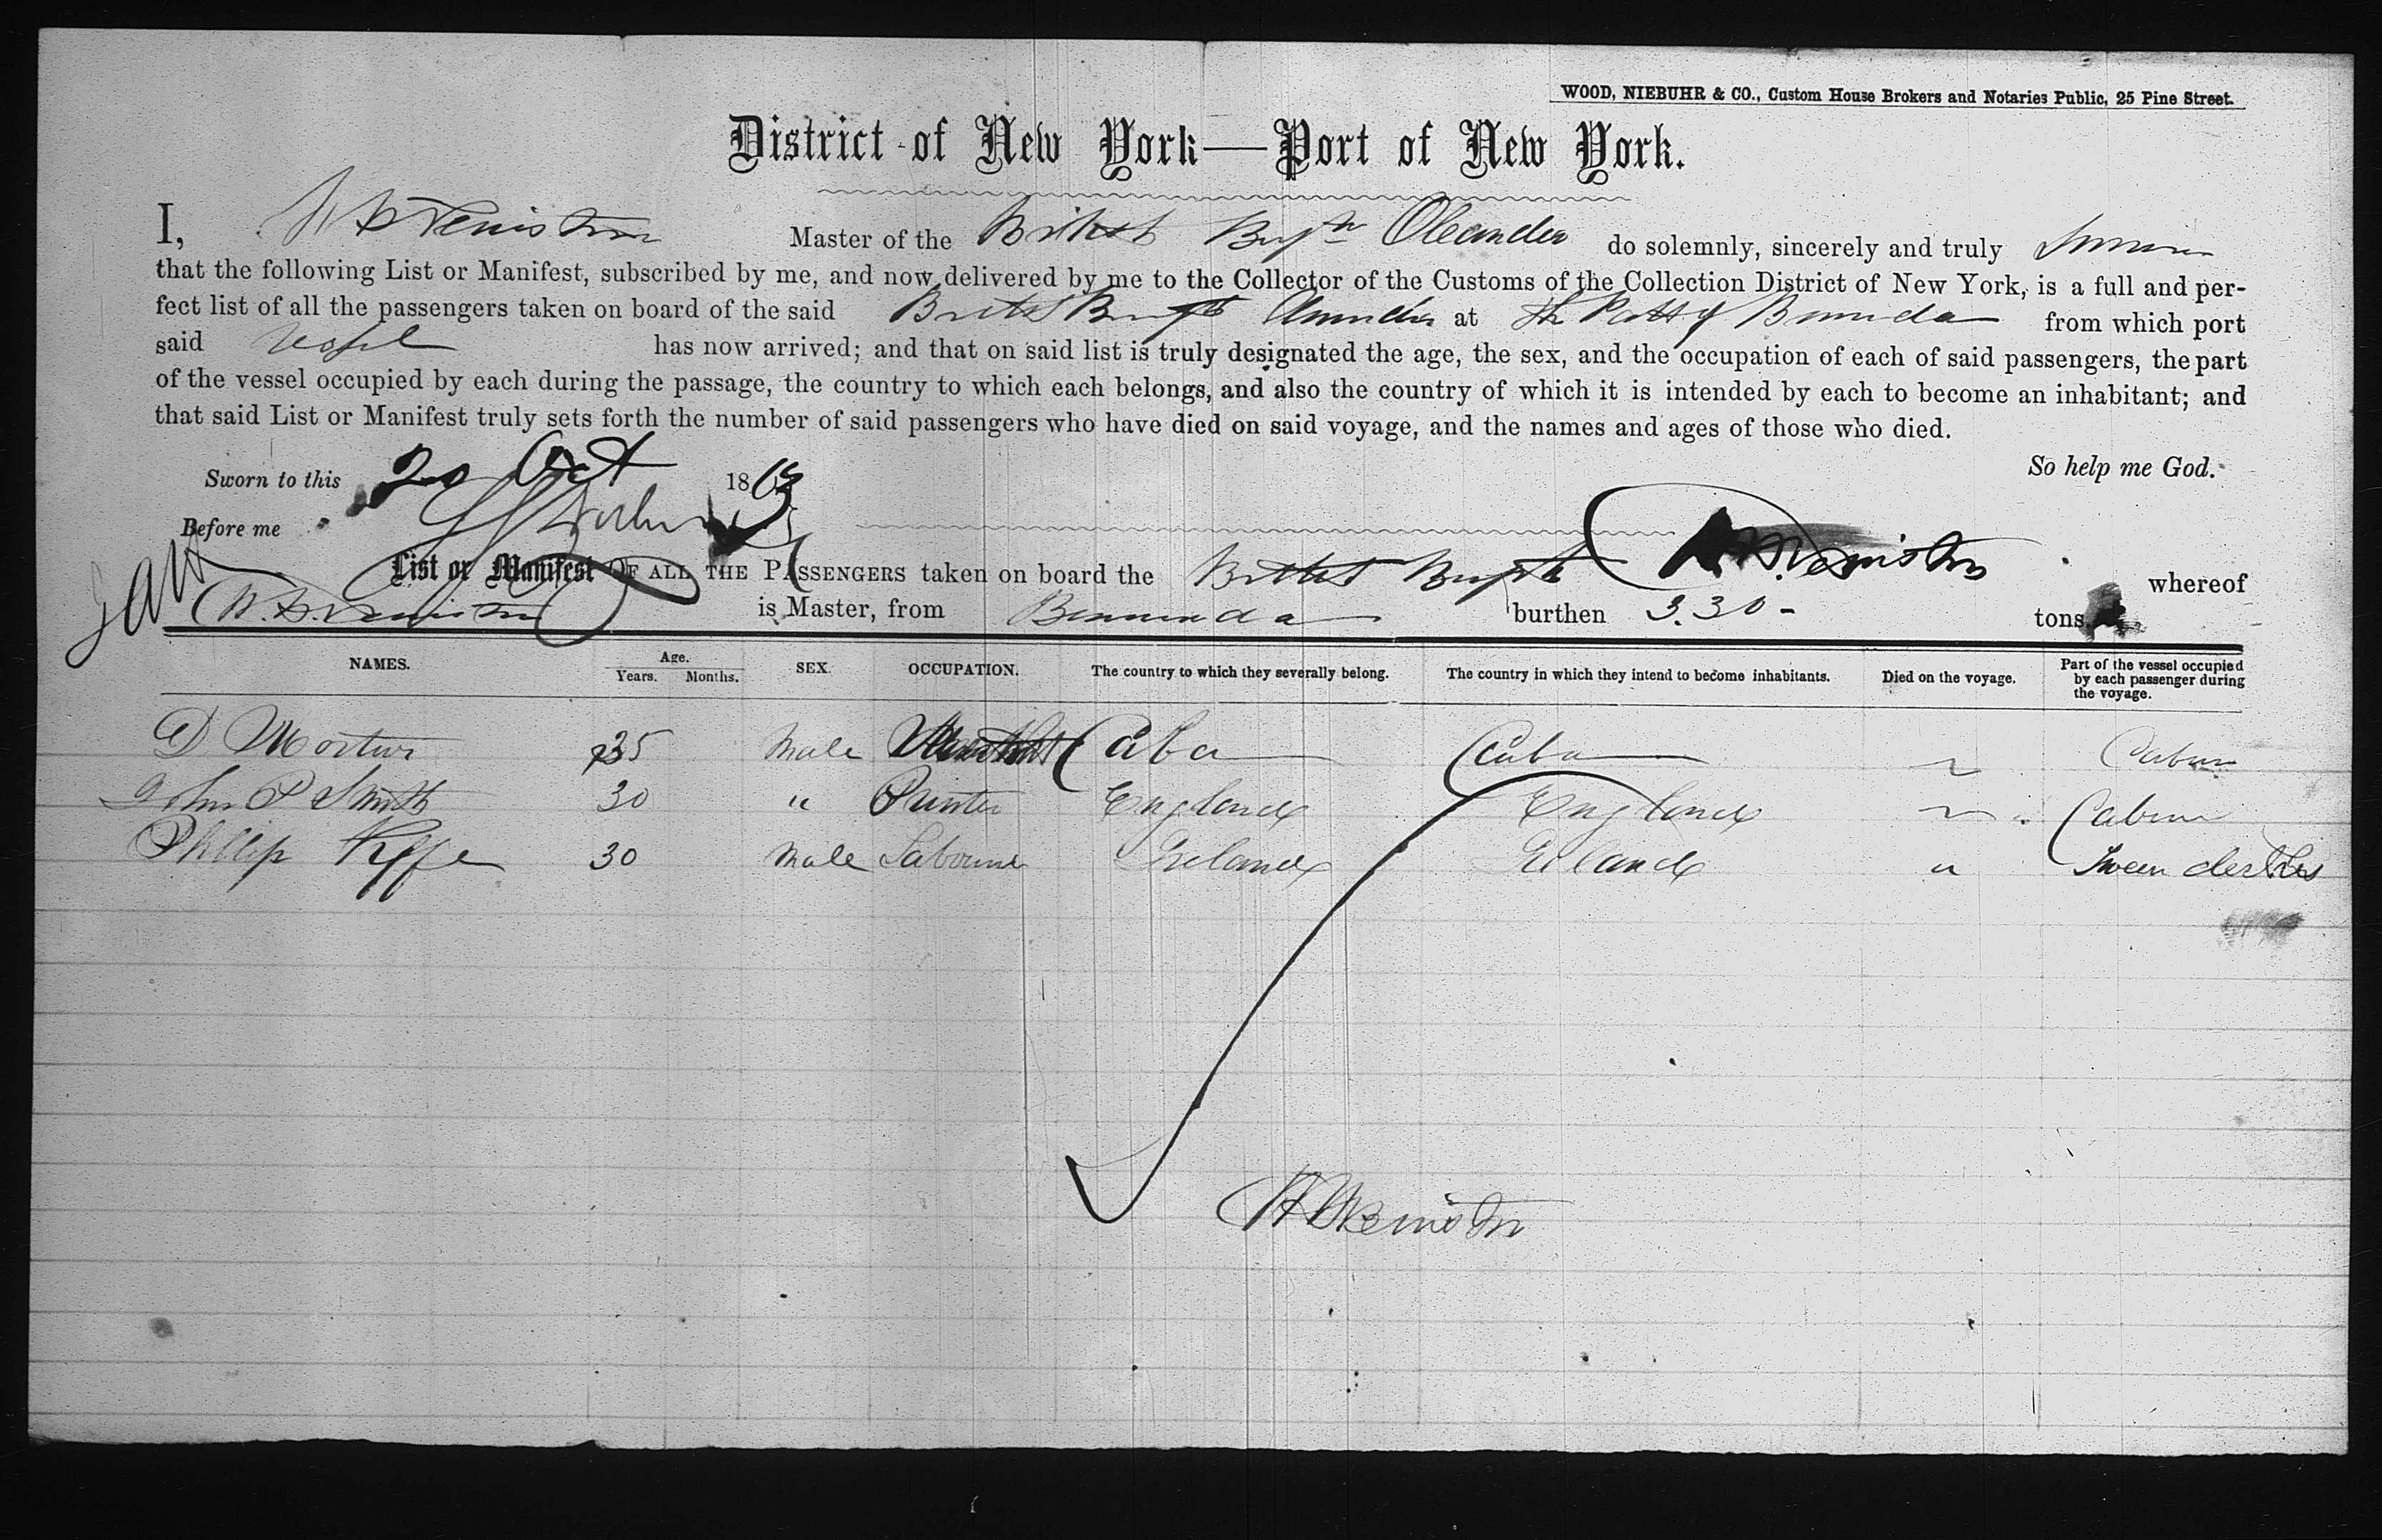 WOOD, NIEBUHR & CO., Custom House Brokers and Notaries Public, 25 Pine Street.
District of New York—Port of New York.
I, Master of the British Brigtn Oleander do solemnly, sincerely and truly
that the following List or Manifest, subscribed by me, and now delivered by me to the Collector of the Customs of the Collection District of New York, is a full and per-
fect list of all the passengers taken on board of the said at the Port of Bermuda from which port
said Vessel has now arrived; and that on said list is truly designated the age, the sex, and the occupation of each of said passengers, the part
of the vessel occupied by each during the passage, the country to which each belongs, and also the country of which it is intended by each to become an inhabitant; and
that said List or Manifest truly sets forth the number of said passengers who have died on said voyage, and the names and ages of those who died.
So help me God.
Sworn to this 20 Oct 1863
Before me
List or Manifest OF ALL THE PASSENGERS taken on board the British whereof
is Master, from Bermuda burthen 330 tons.
NAMES. Age. SEX. OCCUPATION. The country to which they severally belong. The country in which they intend to become inhabitants. Died on the voyage. Part of the vessel occupied by each passenger during the voyage.
Years. Months.
D 35 Male Cuba Cuba Cabin
John P Smith 30 " Printer England England Cabin
Phillip 30 Male Labourer Ireland Ireland " Tween